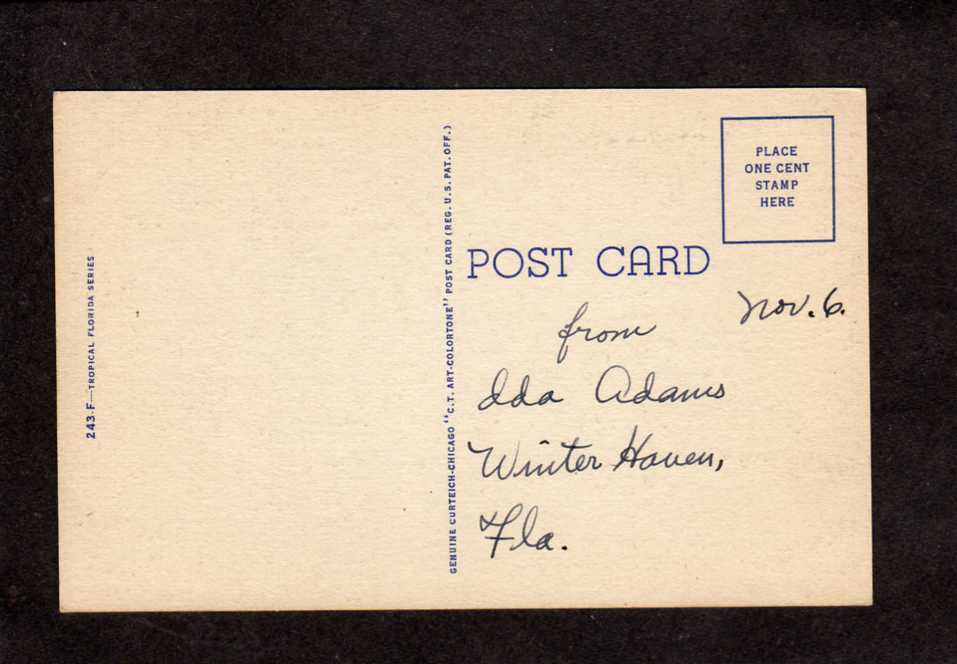 243-F—TROPICAL FLORIDA SERIES
GENUINE CURTEICH-CHICAGO "C.T. ART-COLORTONE" POST CARD (REG. U.S. PAT. OFF.)
PLACE
ONE CENT
STAMP
HERE
POST CARD
Nov. 6.
from
Ida Adams
Winter Haven,
Fla.